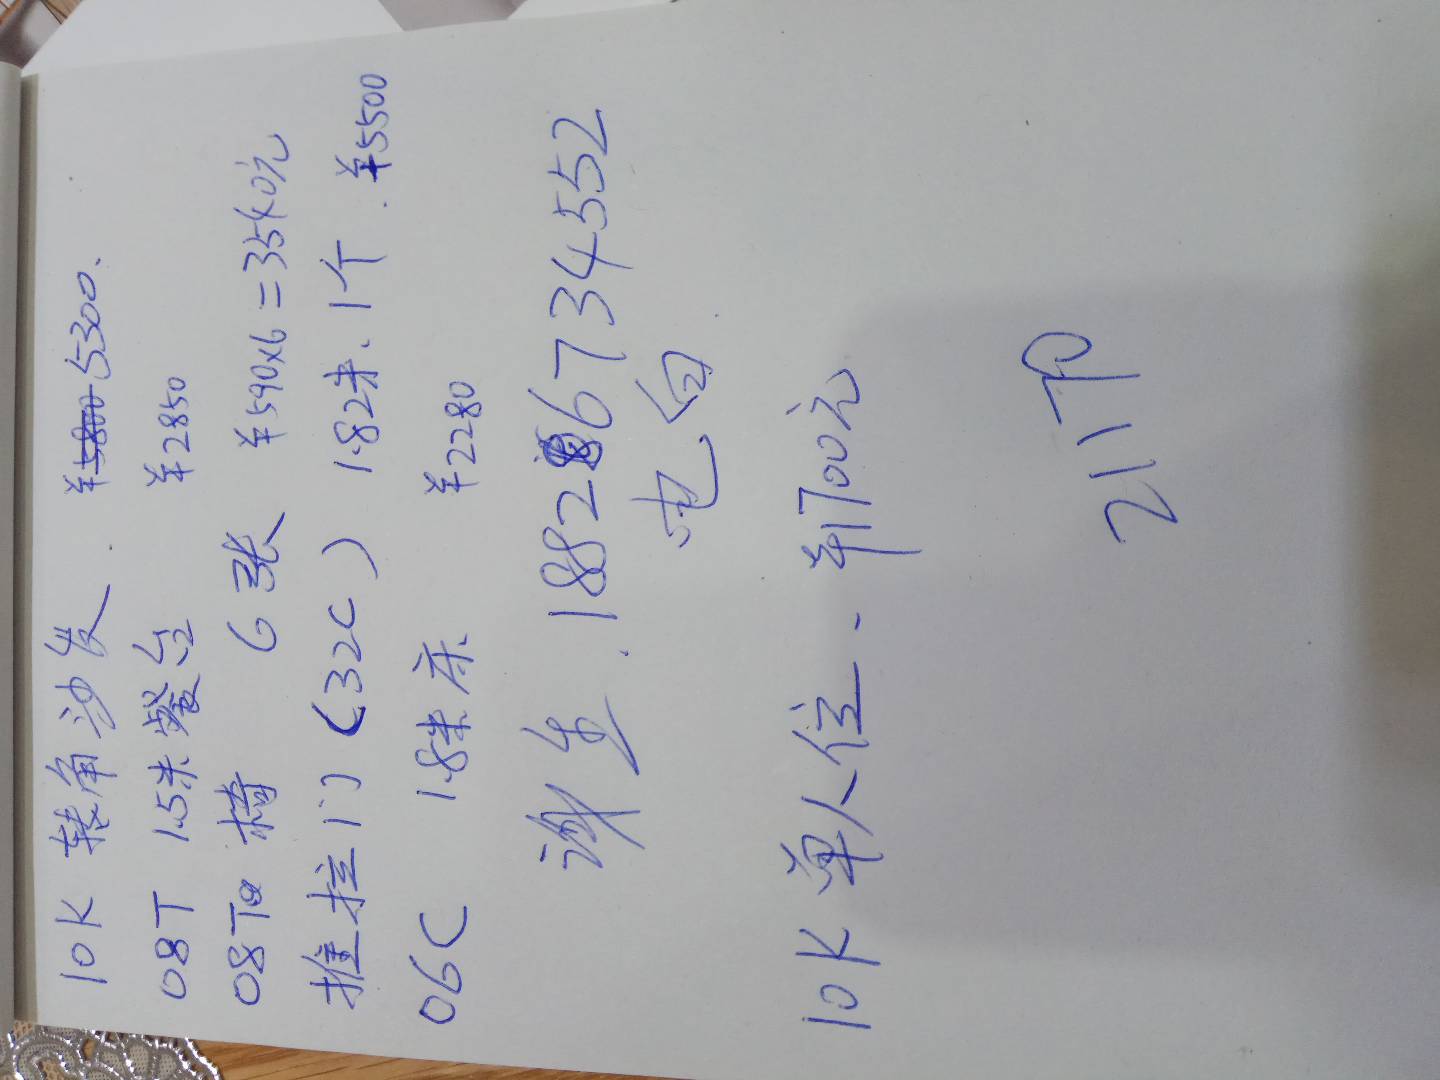 10K 转角沙发 ¥5800 5300.
08T 1.5米餐台 ¥2850
08Ta 椅 6张 ¥590x6=3540元
推拉门(32C) 1.82米.1个.¥5500
06C 1.8米床 ¥2280
谢生.18286734552
电白
10K单人位.¥1700元
21TP